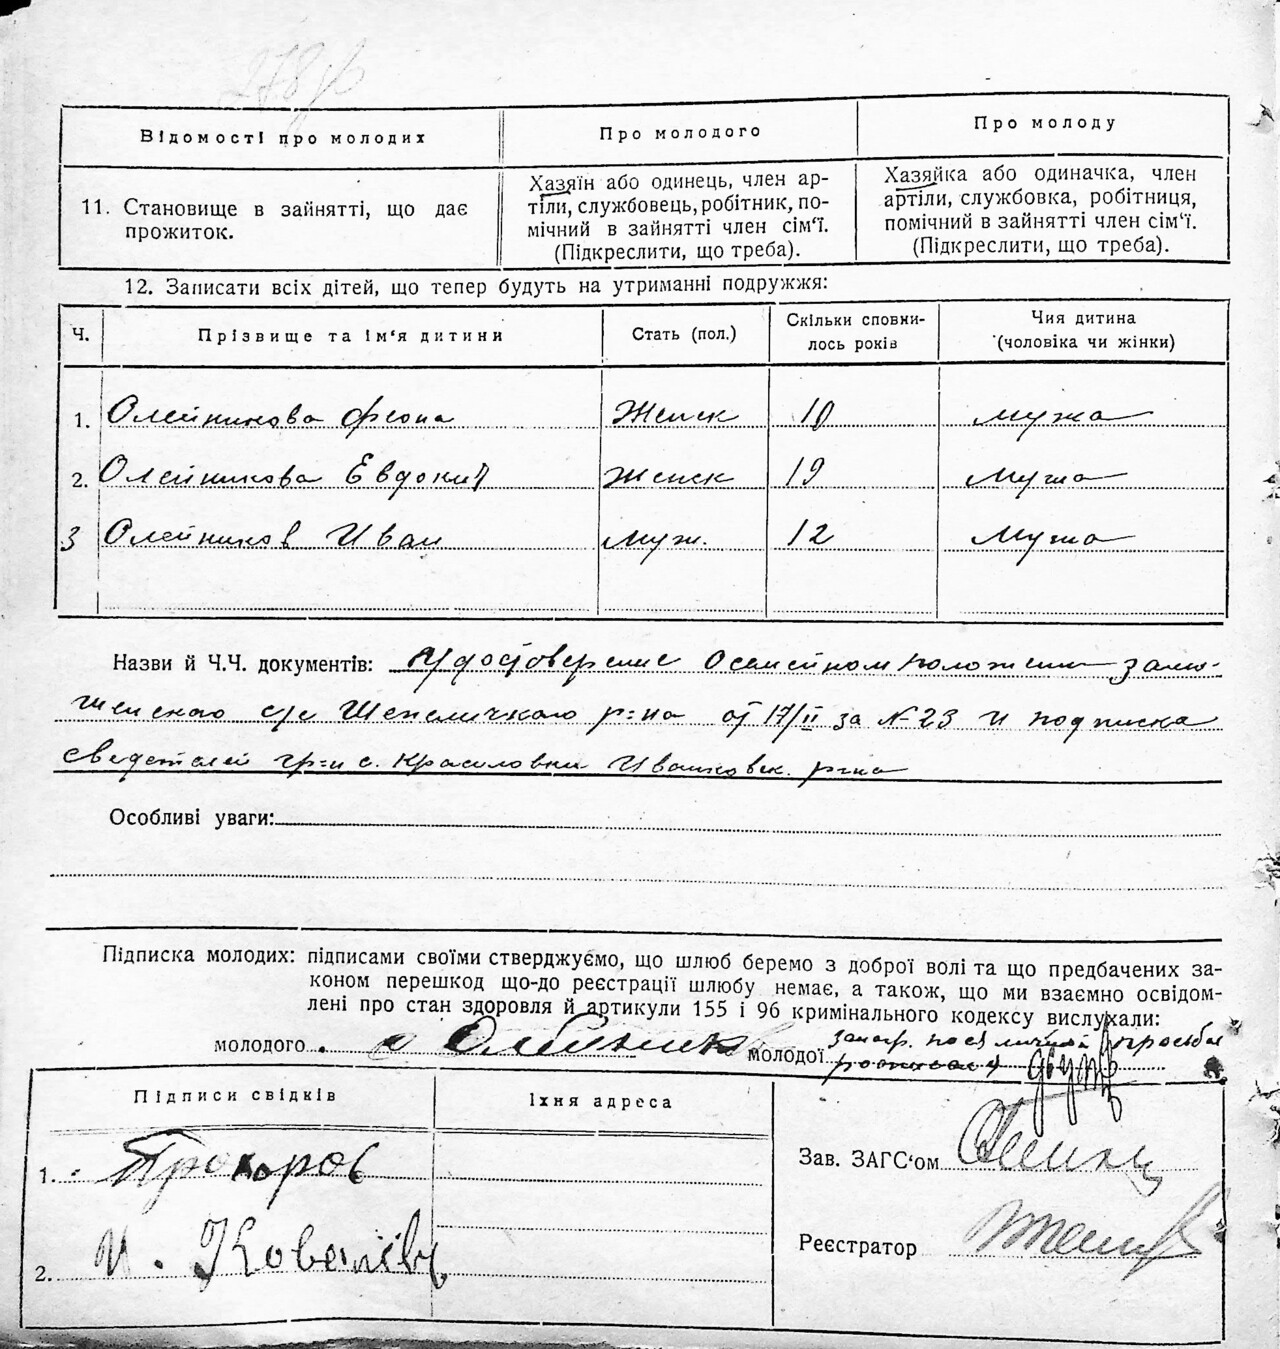 278
Відомості про молодих
Про молодого
Про молоду
11. Становище в зайнятті, що дає
прожиток.
Хазяїн або одинець, член ар-
тіли, службовець, робітник, по-
мічний в зайнятті член сім'ї.
(Підкреслити, що треба).
Хазяйка або одиначка, член
артіли, службовка, робітниця,
помічний в зайнятті член сім'ї.
(Підкреслити, що треба).
12. Записати всіх дітей, що тепер будуть на утриманні подружжя:
Ч. Прізвище та ім'я дитини Стать (пол.) Скільки сповни-
лось років
Чия дитина
(чоловіка чи жінки)
1. Олейникова Феона Женск 10 мужа
2. Олейникова Евдокия Женск 19 мужа
3 Олейников Иван муж. 12 мужа
Назви й Ч.Ч. документів: Удостоверение о семейном положении
с/с Шепеличкого р-на от 17/II за № 23 и подписка
сведетелей гр-н с. Красиловки Иванковск. р-на
Особливі уваги:
Підписка молодих: підписами своїми стверджуємо, що шлюб беремо з доброї волі та що предбачених за-
коном перешкод що-до реєстрації шлюбу немає, а також, що ми взаємно освідом-
лені про стан здоровля й артикули 155 і 96 кримінального кодексу вислухали:
молодого. Олейник молодої личной просьби
Підписи свідків
Їхня адреса
1. Прохоров
2. И. Ковалівъ
Зав. ЗАГС'ом
Реєстратор